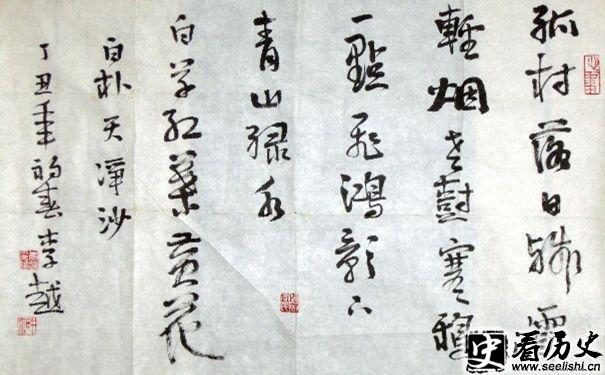 孤村落日残霞
輕烟老樹寒鴉
一點飛鴻影下
青山绿水
白草红葉黄花
白朴天淨沙
丁丑年初春李越
史看历史
www.seelishi.cn